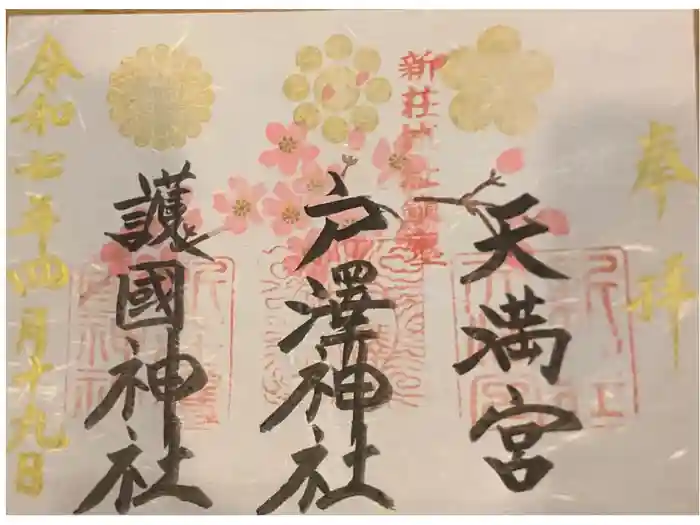 奉拝
天満宮
戸澤神社
護國神社
令和七年四月十九日